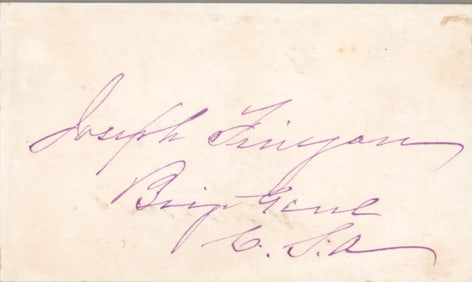 Joseph Finegan
Brig Genl
C. S. A